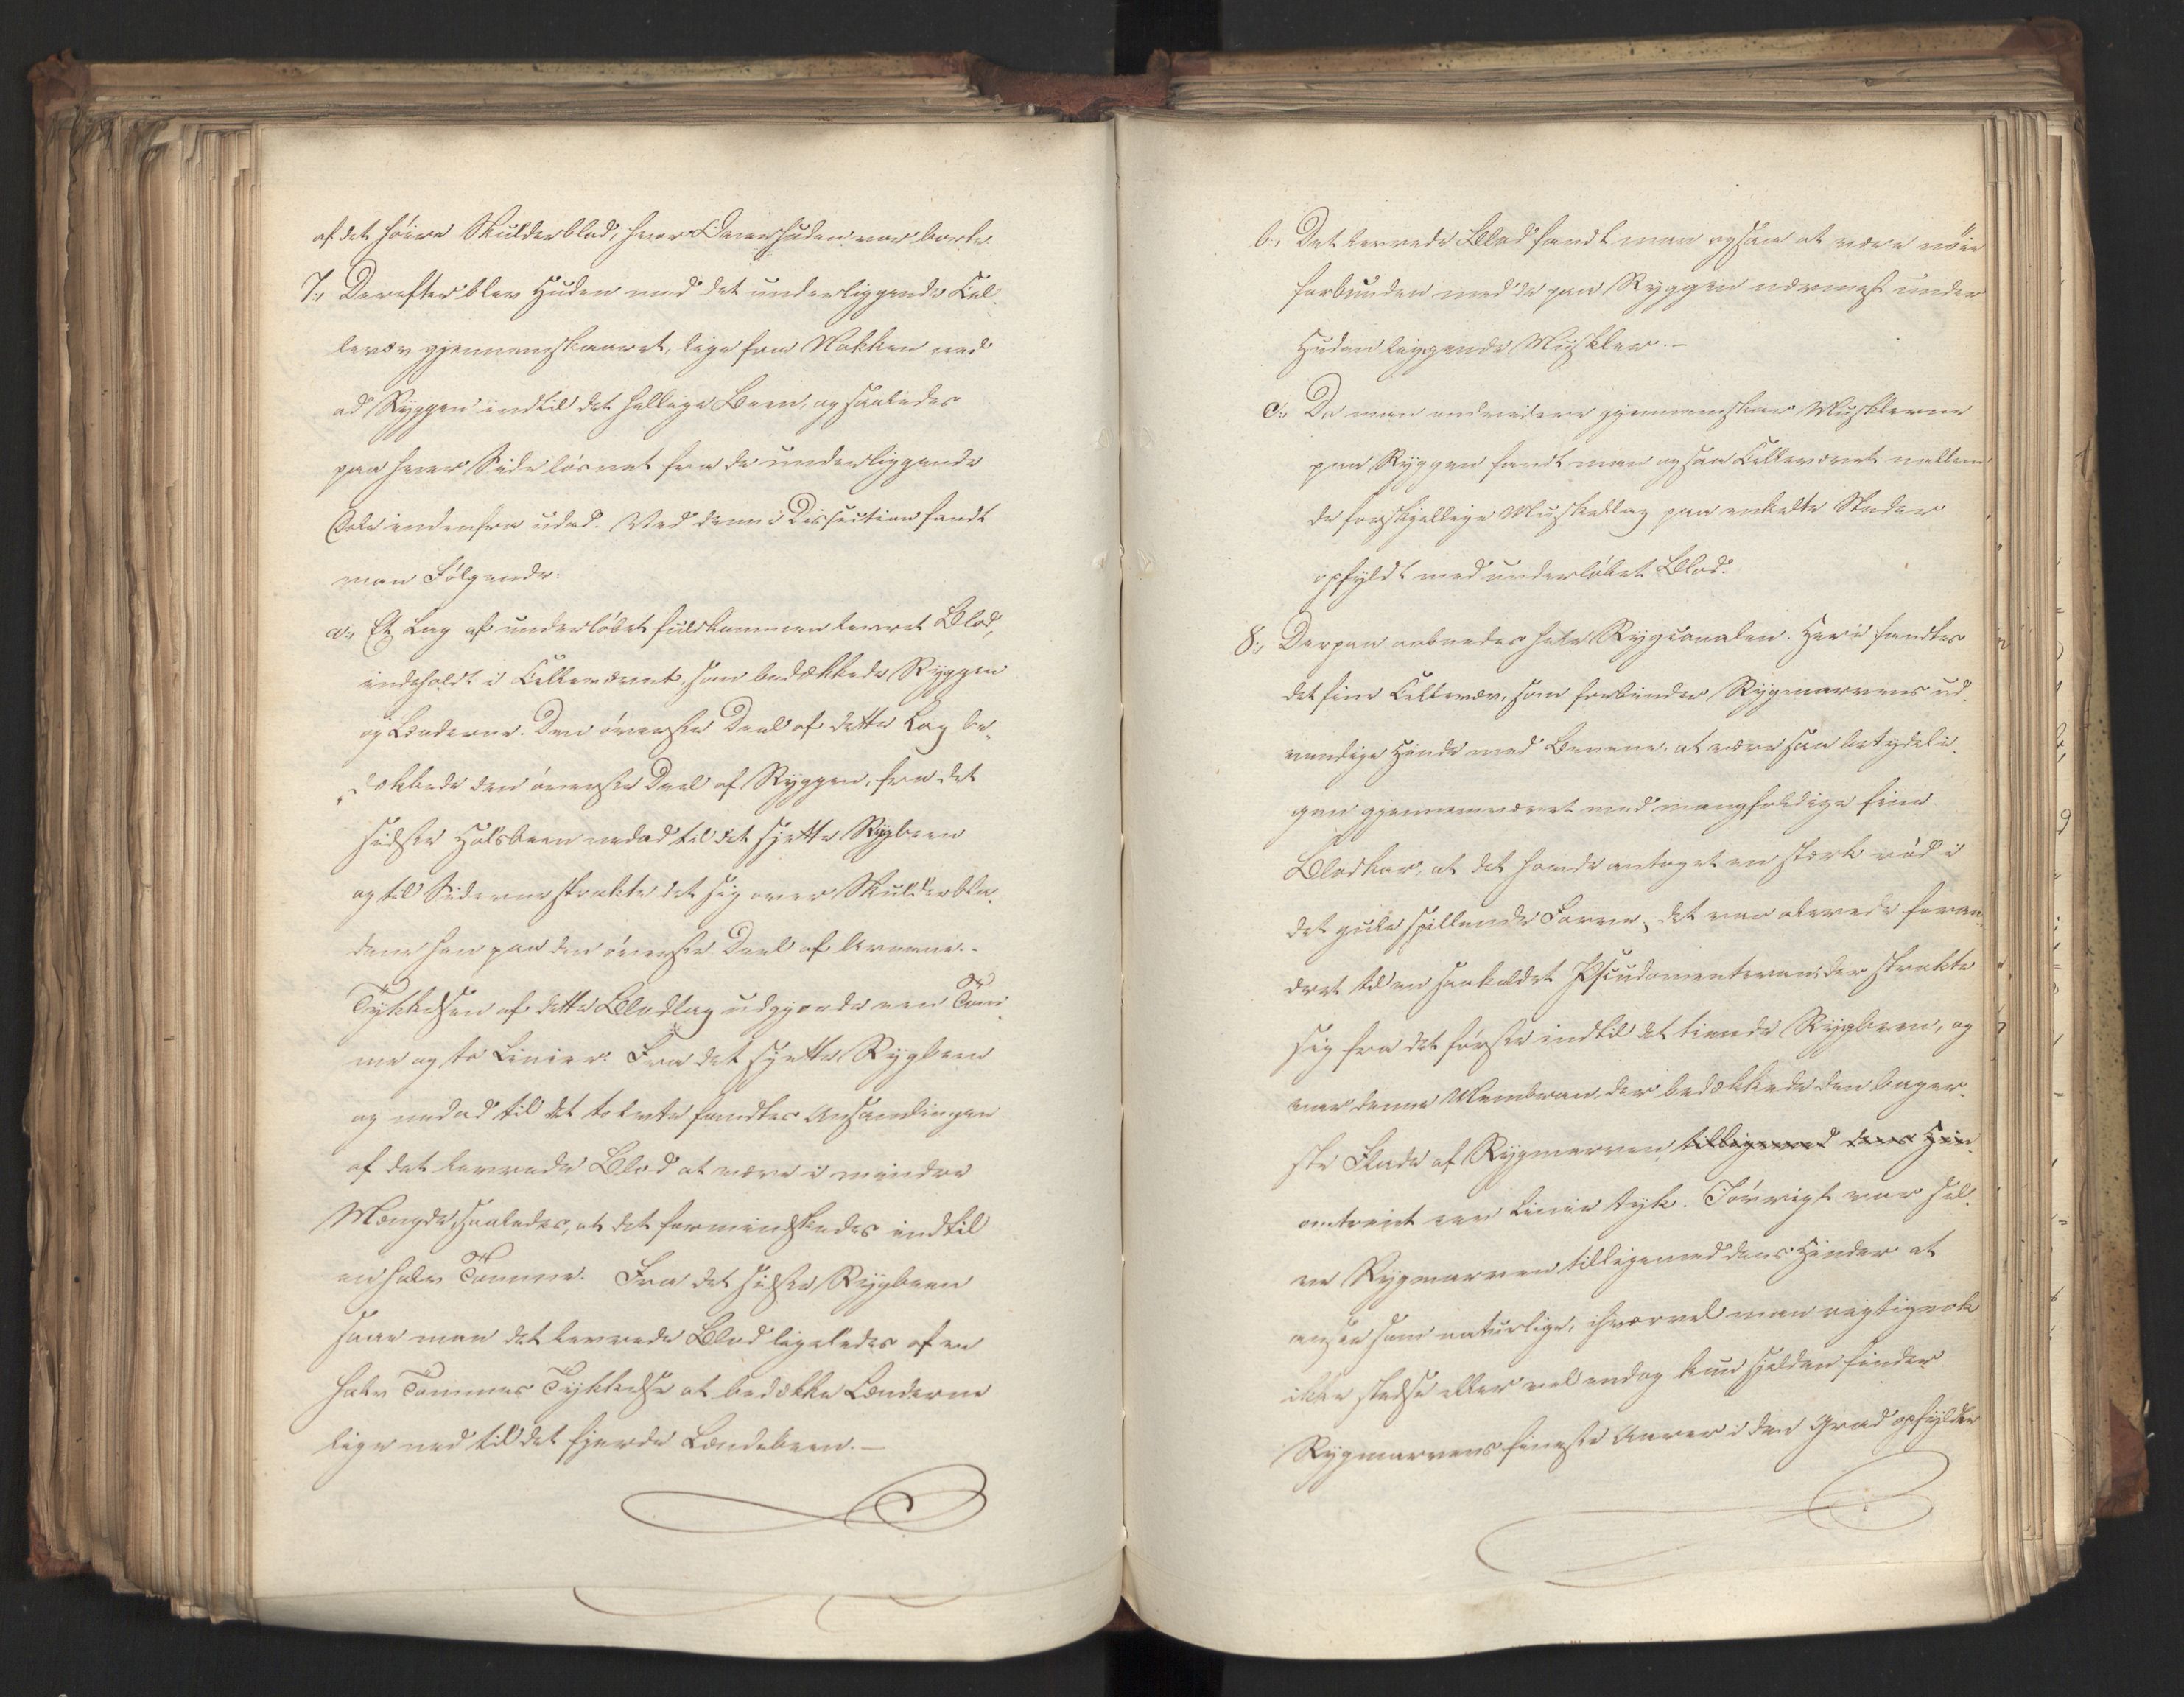 af det høire Skulderblad, hvor Overhuden var borte.
7., Derefter blev Huden med det underliggende Cel-
levæv gjennemskaaret, lige fra Nakken ned
ad Ryggen indtil det hellige Been, og saaledes
paa hver Side løsnet fra de underliggende
Dele indenfra udad. Ved denne Dissection fandt
man Følgende:
a., Et Lag af underløbet fuldkommen levret Blod,
indeholdt i Cellevævet, som bedækkede Ryggen
og Lænderne. Den øverste Deel af dette Lag be-
dækkede den øverste Deel af Ryggen, fra det
sidste Halsbeen nedad til det sjette Rygbeen
og til Siderne strakte det sig over Skulderbla-
dene hen paa den øverste Deel af Armene.-
Tykkelsen af dette Blodlag udgjorde een Tom-
me og to Linier. Fra det sjette Rygbeen
og nedad til det tolvte fandtes Ansamlingen
af det levrede Blod at være i mindre
Mængde, saaledes, at det formindskedes indtil
en halv Tomme. Fra det sidste Rygbeen
saae man det levrede Blod ligeledes af en
halv Tommes Tykkelse at bedække Lænderne
lige ned til det fjerde Lændebeen.—
b., Det levrede Blod fandt man ogsaa at være nöie
forbunden med de paa Ryggen nærmest under
Huden liggende Muskler.—
c., Da man endvidere gjennemskar Musklerne
paa Ryggen fandt man ogsaa Cellevævet mellem
de forskjellige Muskellag paa enkelte Steder
opfyldt med underløbet Blod.
8., Derpaa aabnedes hele Rygcanalen. Heri fandtes
det fine Cellevæv, som forbinder Rygmarvens ud-
vendige Hinde med Benene, at være saa betydeli-
gen gjennemvævet med mangfoldige fine
Blodkar, at det havde antaget en stærk rød i
det gule spillende Farve, det var allerede foran-
dret til en saakaldet Pseudomembran, der strakte
sig fra det første indtil det tiende Rygbeen, og
var denne Membran, der bedækkede den bager-
ste Flade af Rygmarven tilligemed dens Hin-
omtrent een Linie tyk. Iøvrigt var sel-
ve Rygmarven tilligemed dens Hinder at
ansee som naturlige, ihvorvel man rigtignok
ikke stedse eller vel endog kun sjelden finder
Rygmarvens fineste Aarer i den Grad opfyldte